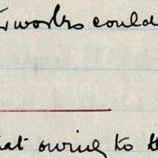 works could
at owing to t